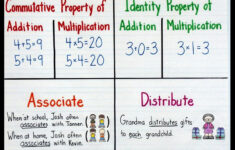 Commutative Property of
Addition Multiplication
4+5=9 4×5=20
5+4=9 5×4=20
Identity Property of
Addition Multiplication
3+0=3 3×1=3
Associate
When at school, Josh often
associates with Tanner.
When at home, Josh often
associates with Kevin.
Distribute
Grandma distributes gifts
to each grandchild.